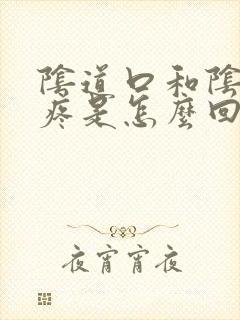 陰道口和陰
疼是怎麼回
夜宵宵夜